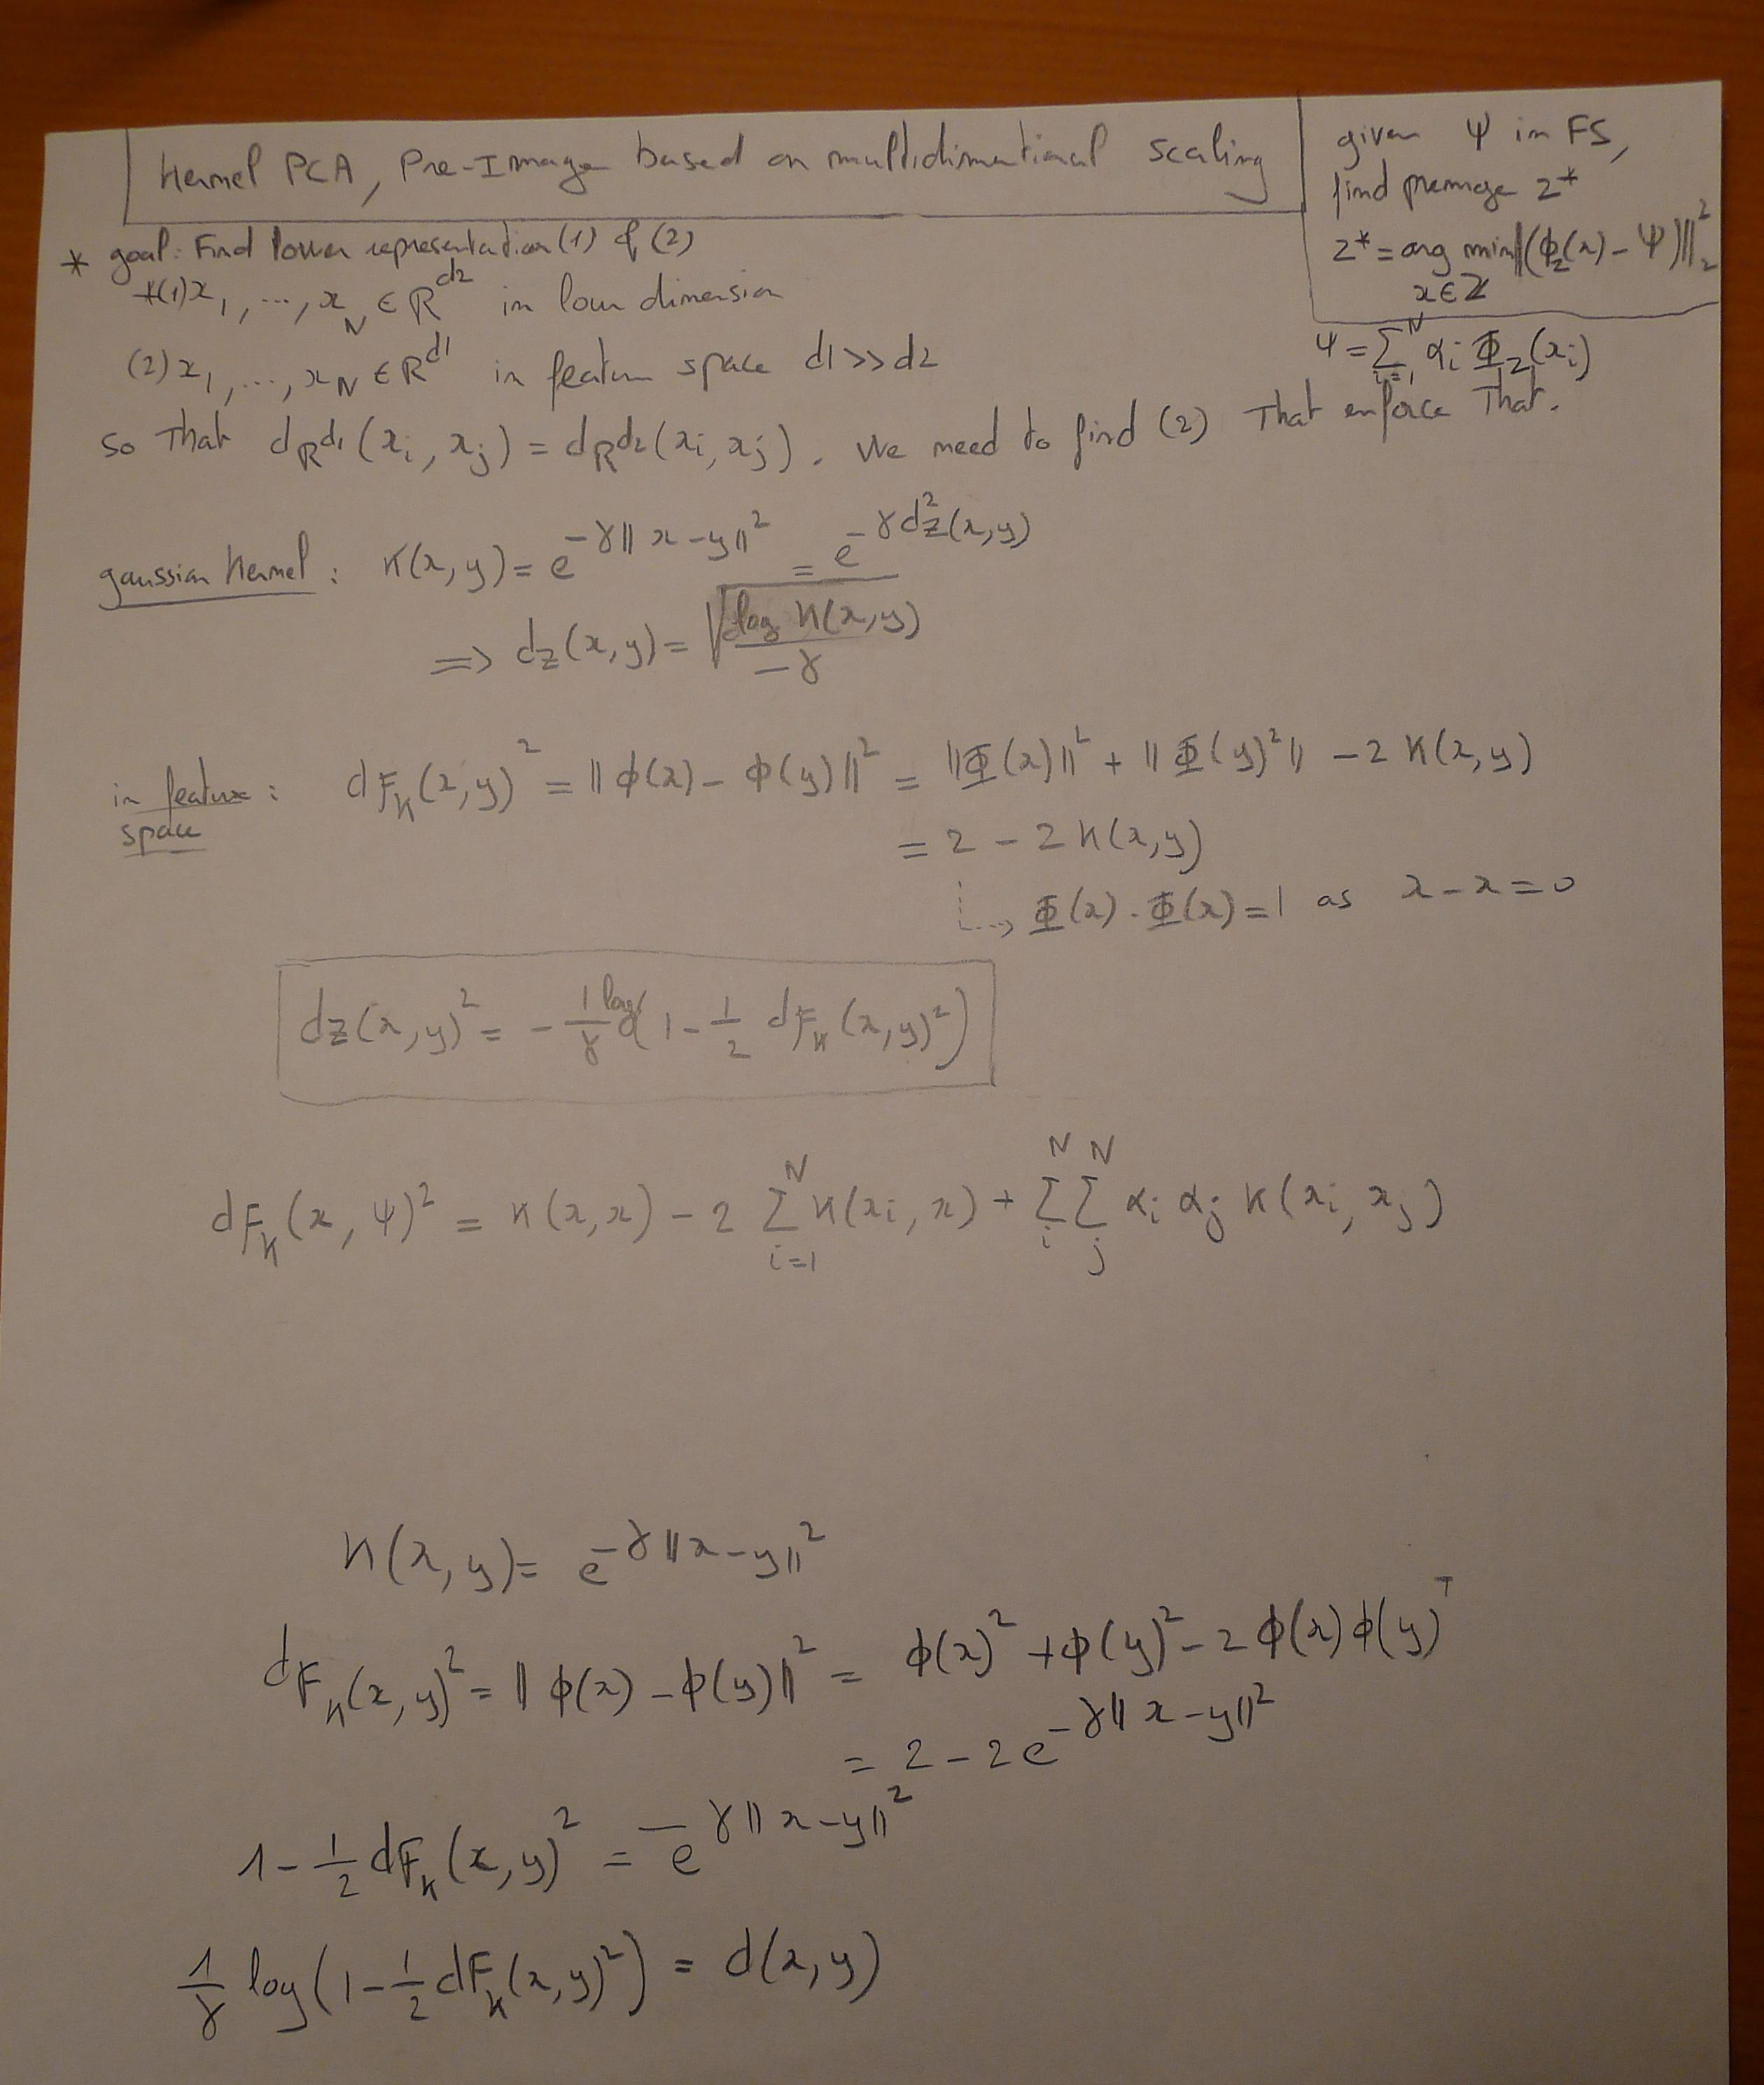 Kernel PCA, Pre-Image based on multidimentional scaling
given Ψ in FS,
find premage z*
z* = arg min ||(ϕ_z(x) - Ψ)||²_2
x ∈ Z
Ψ = Σ_{i=1}^N α_i Φ_z(x_i)
* goal: Find lower representation (1) of (2)
*(1) x_1, ..., x_N ∈ R^{d2} in low dimension
(2) x_1, ..., x_N ∈ R^{d1} in feature space d1 >> d2
so that d_{R^{d1}}(x_i, x_j) = d_{R^{d2}}(x_i, x_j). We need to find (2) that enforce that.
gaussian kernel: K(x, y) = e^{-γ||x-y||²} = e^{-γ d_z²(x,y)}
=> d_z(x, y) = √(log K(x,y) / -γ)
in feature space: d_{F_K}(x, y)² = ||ϕ(x) - ϕ(y)||² = ||Φ(x)||² + ||Φ(y)²|| - 2 K(x, y)
= 2 - 2 K(x, y)
↳ Φ(x) . Φ(x) = 1 as x - x = 0
d_z(x, y)² = - 1/γ log(1 - 1/2 d_{F_K}(x, y)²)
d_{F_K}(x, Ψ)² = K(x, x) - 2 Σ_{i=1}^N K(x_i, x) + Σ_i^N Σ_j^N α_i α_j K(x_i, x_j)
K(x, y) = e^{-γ||x-y||²}
d_{F_K}(x, y)² = ||ϕ(x) - ϕ(y)||² = ϕ(x)² + ϕ(y)² - 2 ϕ(x) ϕ(y)^T
= 2 - 2 e^{-γ||x-y||²}
1 - 1/2 d_{F_K}(x, y)² = e^{-γ||x-y||²}
1/γ log(1 - 1/2 d_{F_K}(x, y)²) = d(x, y)